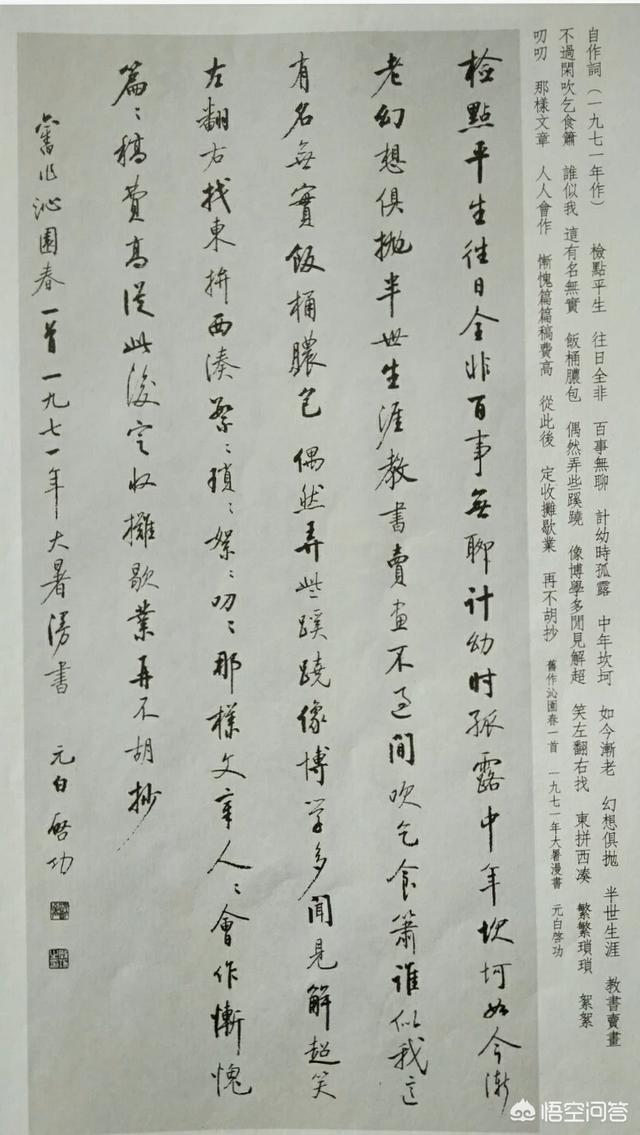 自作詞（一九七一年作） 檢點平生 往日全非 百事無聊 計幼時孤露 中年坎坷 如今漸老 幻想俱拋 半世生涯 教書賣畫
不過閑吹乞食簫 誰似我 這有名無實 飯桶膿包 偶然弄些蹊蹺 像博學多聞見解超 笑左翻右找 東拼西湊 繁繁瑣瑣 絮絮
叨叨 那樣文章 人人會作 慚愧篇篇稿費高 從此後 定收攤歇業 再不胡抄 舊作沁園春一首 一九七一年大暑漫書 元白啓功
檢點平生往日全非百事無聊計幼时孤露中年坎坷如今漸
老幻想俱拋半世生涯教書賣畫不過閒吹乞食簫誰似我這
有名無實飯桶膿包偶然弄些蹊蹺像博学多聞見解超笑
左翻右找東拼西湊繁〻瑣〻絮〻叨〻那樣文章人〻會作慚愧
篇〻稿費高從此後定收攤歇業再不胡抄
舊作沁園春一首一九七一年大暑漫書 元白啓功
悟空问答